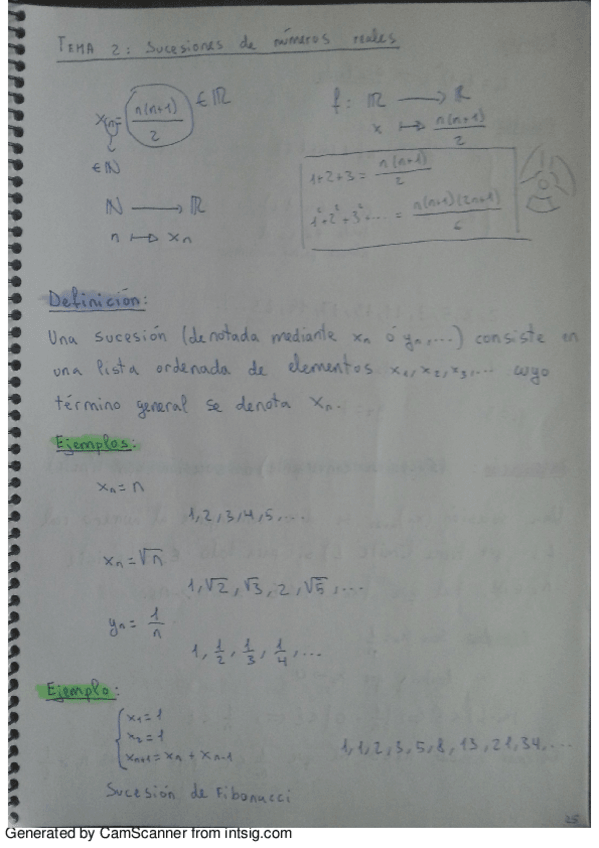 TEMA 2: Sucesiones de números reales
x(n) = n(n+1)/2 ∈ ℝ
∈ ℕ
ℕ ⟶ ℝ
n ↦ xn
f: ℝ ⟶ ℝ
x ↦ n(n+1)/2
1+2+3 = n(n+1)/2
1²+2²+3²+... = n(n+1)(2n+1)/6
Definición:
Una sucesión (denotada mediante xn ó yn,...) consiste en
una lista ordenada de elementos x1, x2, x3,... cuyo
término general se denota xn.
Ejemplos:
xn = n
1, 2, 3, 4, 5, ...
xn = √n
1, √2, √3, 2, √5, ...
yn = 1/n
1, 1/2, 1/3, 1/4, ...
Ejemplo:
x1 = 1
x2 = 1
xn+1 = xn + xn-1
1, 1, 2, 3, 5, 8, 13, 21, 34, ...
Sucesión de Fibonacci
25
Generated by CamScanner from intsig.com